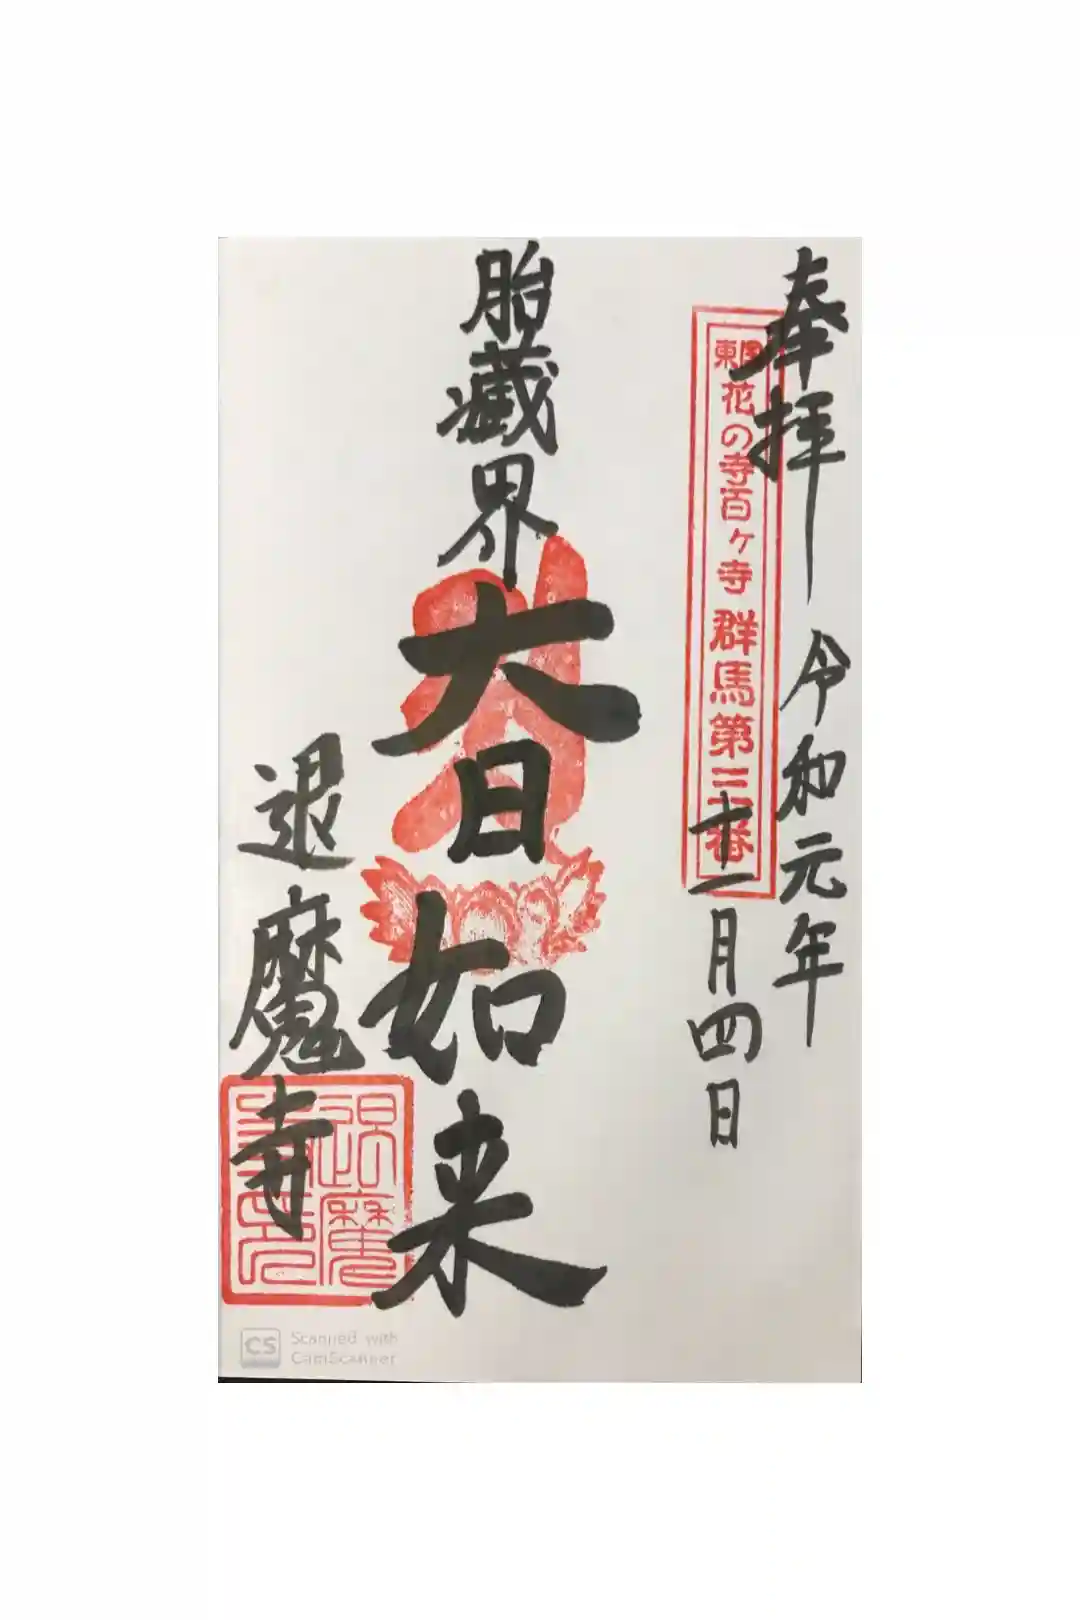 奉拝
令和元年
東国花の寺百ヶ寺 群馬第三番
十一月四日
胎蔵界
大日如来
退魔寺
Scanned with
CamScanner
CS